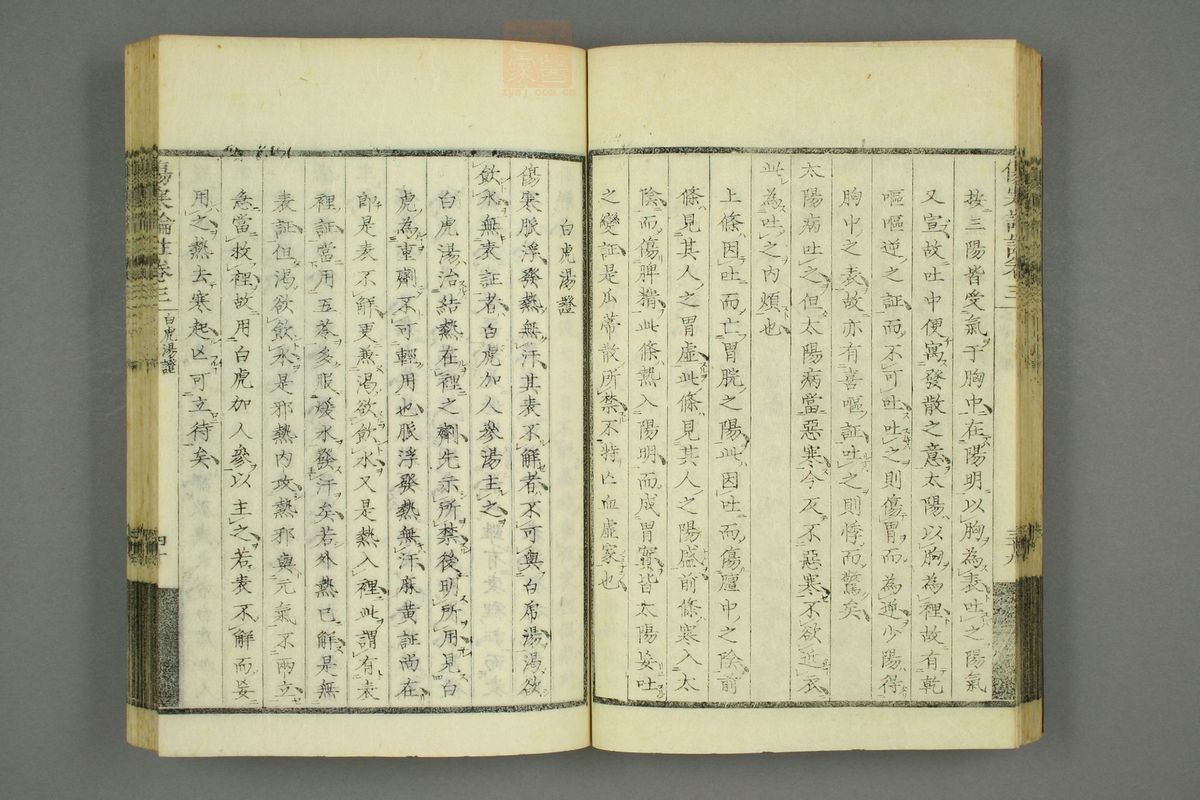 按三陽皆受氣于胸中在陽明以胸為表吐之陽氣
又宣故吐中便寓發散之意太陽以胸為裡故有乾
嘔嘔逆之証而不可吐吐之則傷胃而為逆少陽得
胸中之表故亦有喜嘔証吐之則悸而驚矣
太陽病吐之但太陽病當惡寒今反不惡寒不欲近衣
此為吐之內煩也
上條因吐而亡胃脘之陽此因吐而傷膻中之陰前
條見其人之胃虛此條見其人之陽盛前條寒入太
陰而傷脾精此條熱入陽明而成胃實皆太陽妄吐
之變証是瓜蒂散所禁不特亡血虛家也
白虎湯證
傷寒脈浮發熱無汗其表不解者不可與白虎湯渴欲
飲水無表証者白虎加人參湯主之
白虎湯治結熱在裡之劑先示所禁後明所用見白
虎為重劑不可輕用也脈浮發熱無汗麻黃証尚在
即是表不解更兼渴欲飲水又是熱入裡此謂有表
裡証當用五苓多服煖水發汗矣若外熱已解是無
表証但渴欲飲水是邪熱內攻熱邪與元氣不兩立
急當救裡故用白虎加人參以主之若表不解而妄
用之熱去寒起亡可立待矣
傷寒論註卷三
白虎湯證
四十
三十九